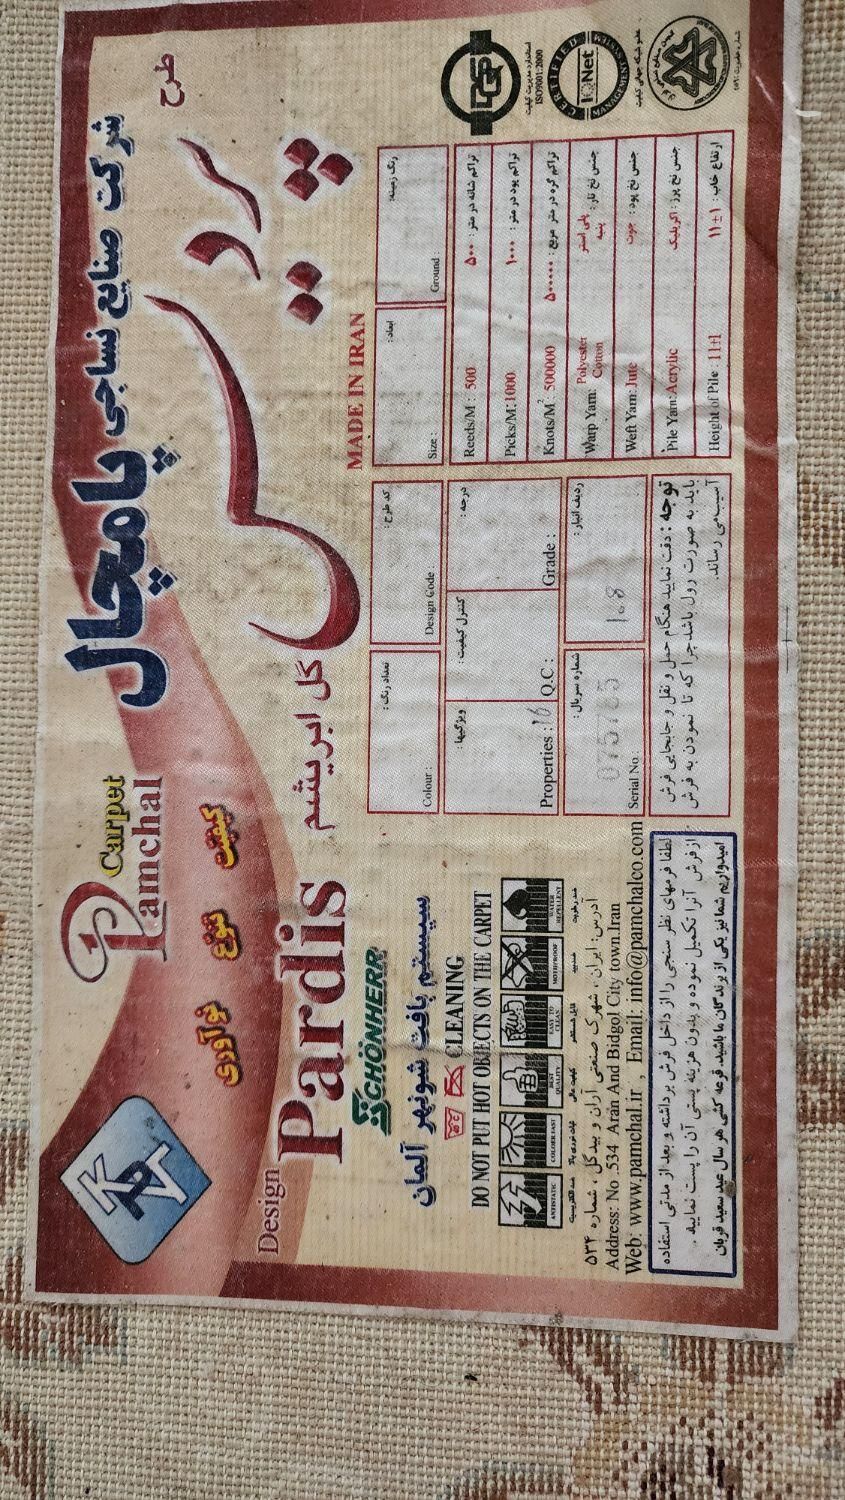 شرکت صنایع نساجی پامچال
Pamchal
Carpet
نوآوری تنوع کیفیت
طرح
پردیس
گل ابریشم
Design
Pardis
MADE IN IRAN
SCHÖNHERR
سیستم بافت شونهر آلمان
CLEANING
DO NOT PUT HOT OBJECTS ON THE CARPET
ANTISTATIC
COLOUR FAST
BEST QUALITY
EASY TO CLEAN
MOTHPROOF
WATER REPELLENT
آدرس: ایران، شهرک صنعتی آران و بیدگل، شماره ۵۳۴
Address: No .534 Aran And Bidgol City town.Iran
Web: www.pamchal.ir , Email: info@pamchalco.com
لطفا فرمهای نظر سنجی را از داخل فرش برداشته و بعد از مدتی استفاده
از فرش آنرا تکمیل نموده و بدون هزینه پستی آن را پست نمایید .
امیدواریم شما نیز یکی از برندگان ما باشید، قرعه کشی هر سال عید سعید قربان
تعداد رنگ :
Colour :
کد طرح :
Design Code :
ابعاد :
Size :
رنگ زمینه:
Ground :
ویژگیها :
Properties : 16
کنترل کیفیت :
Q.C :
درجه :
Grade :
شماره سریال :
Serial No
ردیف انبار :
108
توجه : دقت نمایید هنگام حمل و نقل و جابجایی فرش
باید به صورت رول باشد چرا که تا نمودن به فرش
آسیب می رساند.
Reeds/M : 500 تراکم شانه در متر : ۵۰۰
Picks/M:1000 تراکم پود در متر : ۱۰۰۰
Knots/M² 500000 تراکم گره در متر مربع : ۵۰۰۰۰۰
Warp Yarn: Polyester Cotton جنس نخ تار : پلی استر پنبه
Weft Yarn: Jute جنس نخ پود : جوت
Pile Yarn: Acrylic جنس نخ پرز : اکریلیک
Height of Pile 11±1 ارتفاع خاب : ۱۱±۱
استاندارد مدیریت کیفیت
ISO9001:2000
CERTIFIED
IQNet
MANAGEMENT SYSTEM
عضو شبکه جهانی کیفیت